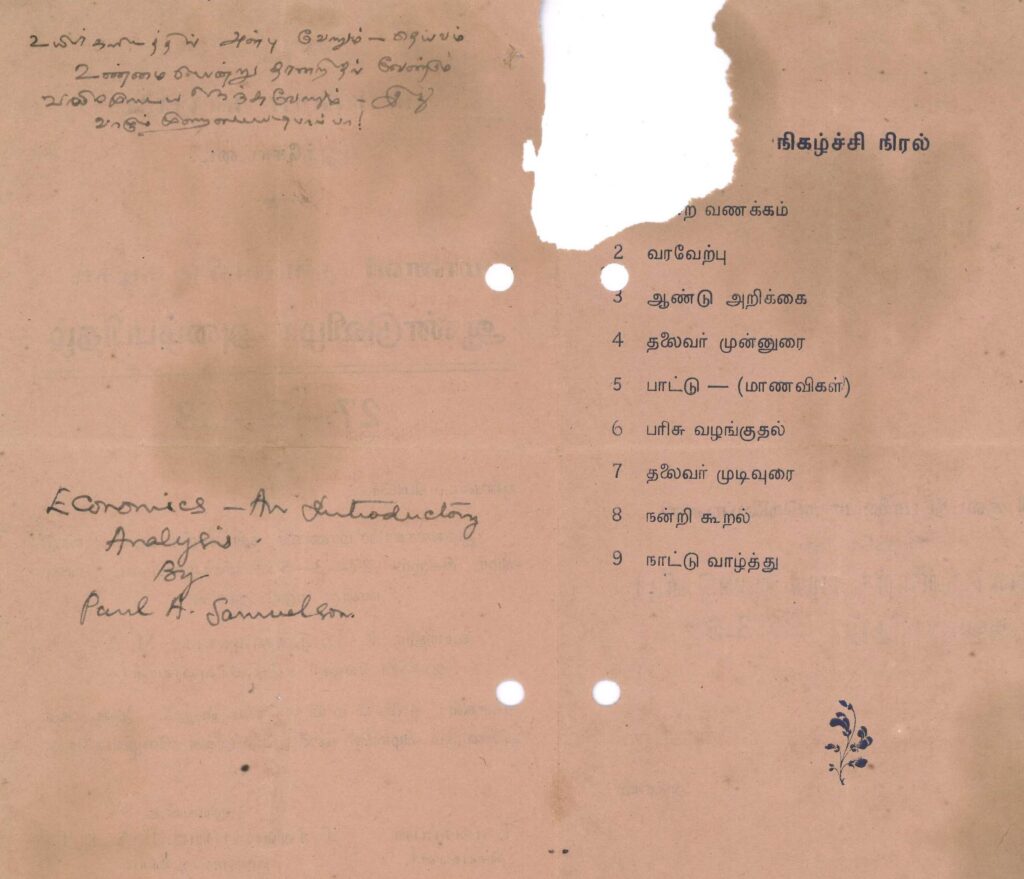 உயிர்களிடத்தில் அன்பு வேணும் – தெய்வம்
உண்மையென்று தானறிதல் வேண்டும்
வயிரமுடைய நெஞ்சு வேணும் – இது
வாழும் முறைமையடி பாப்பா!
Economics – An Introductory
Analysis.
By
Paul A. Samuelson.
நிகழ்ச்சி நிரல்
வணக்கம்
2 வரவேற்பு
3 ஆண்டு அறிக்கை
4 தலைவர் முன்னுரை
5 பாட்டு — (மாணவிகள்)
6 பரிசு வழங்குதல்
7 தலைவர் முடிவுரை
8 நன்றி கூறல்
9 நாட்டு வாழ்த்து